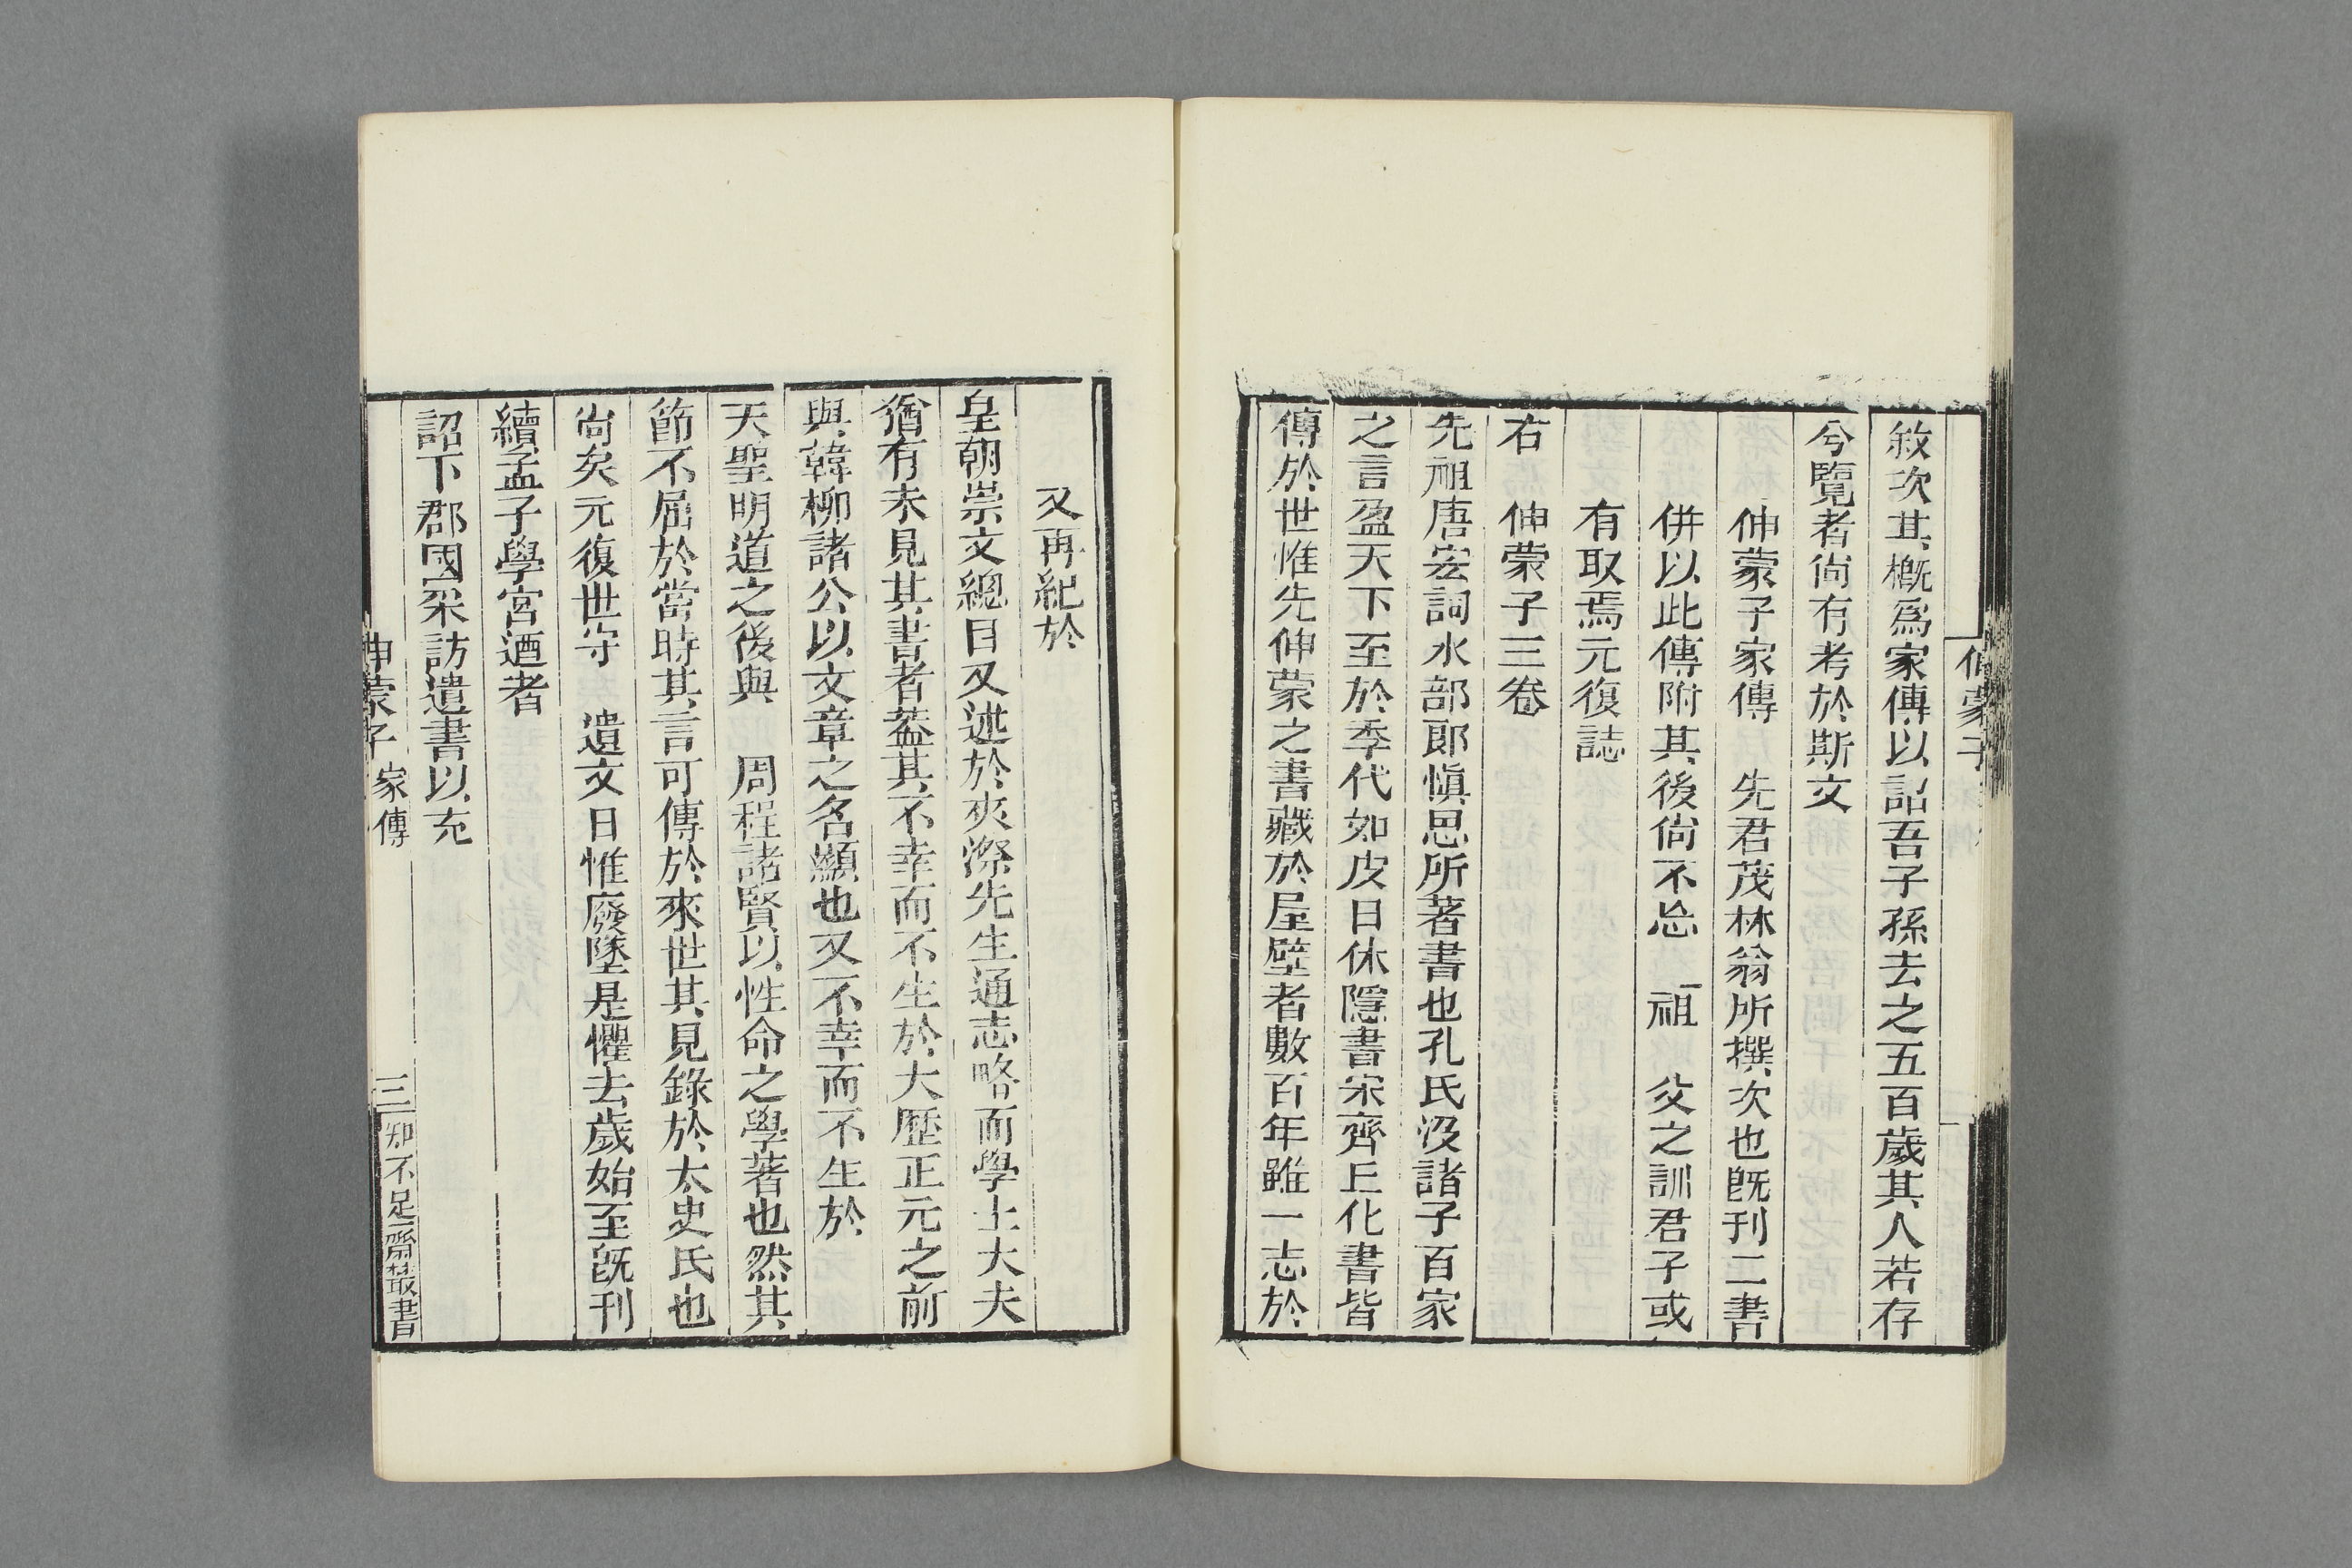 伸蒙子
敘次其槪爲家傳以詔吾子孫去之五百歲其人若存
兮覽者尙有考於斯文
伸蒙子家傳 先君茂林翁所撰次也旣刊二書
併以此傳附其後尙不忘 祖 父之訓君子或
有取焉元復誌
右 伸蒙子三卷
先祖唐宏詞水部郎愼思所著書也孔氏沒諸子百家
之言盈天下至於季代如皮日休隱書宋齊丘化書皆
傳於世惟先伸蒙之書藏於屋壁者數百年雖一志於
又再紀於
皇朝崇文總目又述於夾漈先生通志略而學士大夫
猶有未見其書者葢其不幸而不生於大歷正元之前
與韓柳諸公以文章之名顯也又不幸而不生於
天聖明道之後與 周程諸賢以性命之學著也然其
節不屈於當時其言可傳於來世其見錄於太史氏也
尙矣元復世守 遺文日惟廢墜是懼去歲始至旣刊
續孟子學宮迺者
詔下郡國采訪遺書以充
伸蒙子 家傳 三 知不足齋叢書